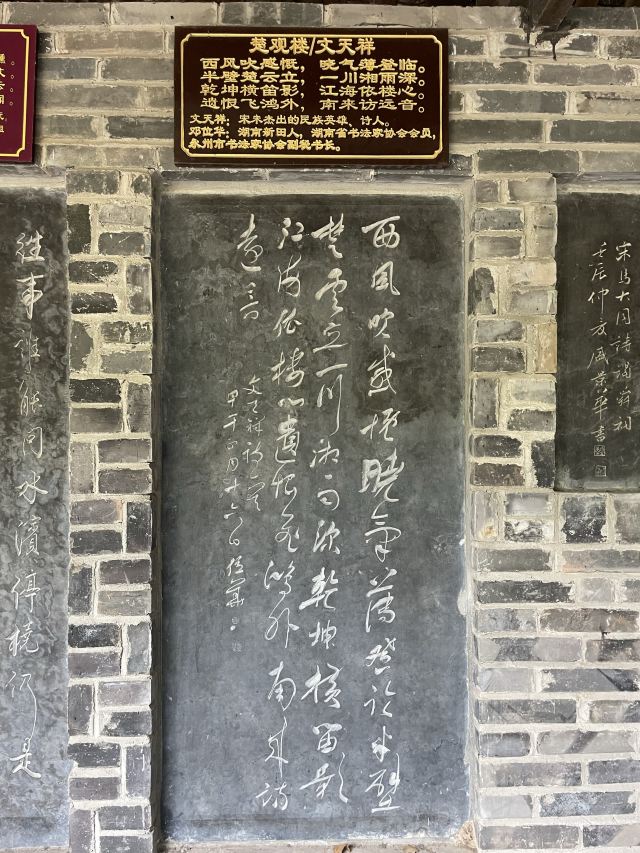 楚观楼/文天祥
西风吹感慨，晓气薄登临。
半壁楚云立，一川湘雨深。
乾坤横笛影，江海依楼心。
遗恨飞鸿外，南来访远音。
文天祥：宋末杰出的民族英雄、诗人。
邓位华：湖南新田人，湖南省书法家协会会员，
永州市书法家协会副秘书长。
宋馬大同詩谒
壬辰仲夏華書
西風吹感慨曉氣薄登臨半壁
楚雲立一川湘雨深乾坤横笛影
江海依樓心遺恨飛鴻外南來訪
遠音
文天祥
甲午月十六日位華
往事誰能問水濱停橈仍是